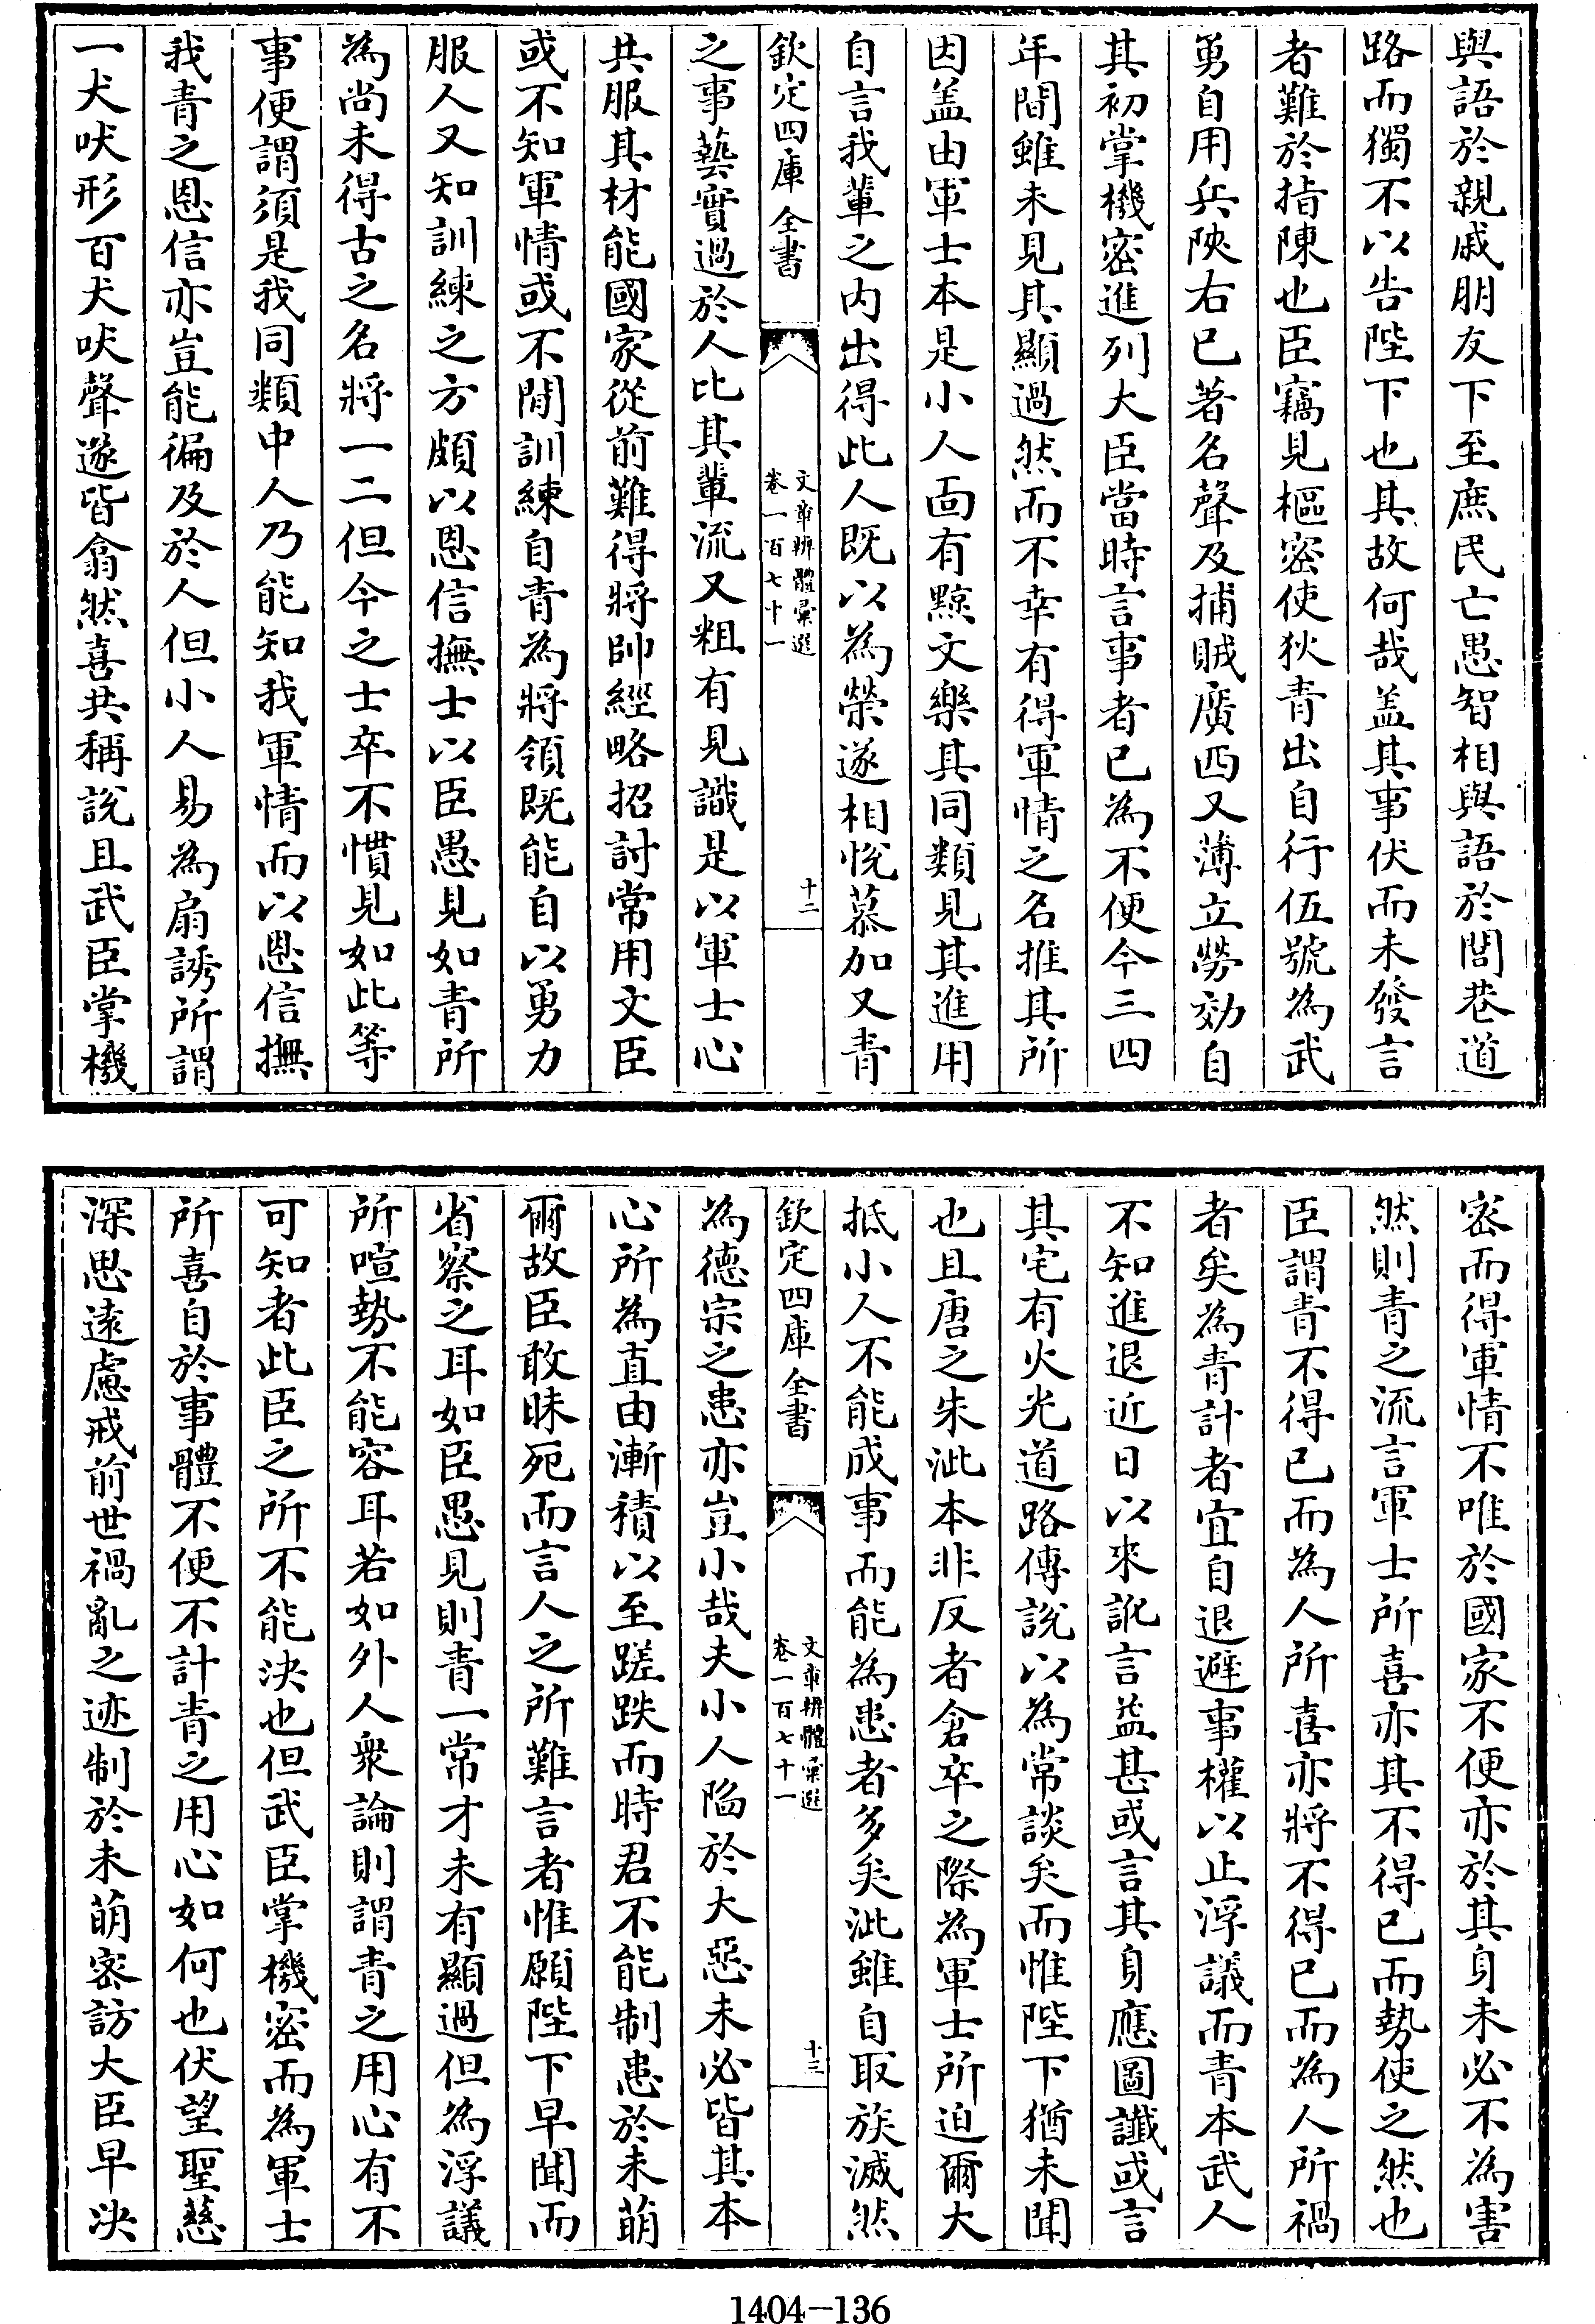 與語於親戚朋友下至庶民亡愚智相與語於閭巷道
路而獨不以告陛下也其故何哉盖其事伏而未發言
者難於指陳也臣竊見樞密使狄青出自行伍號為武
勇自用兵陜右已著名聲及捕賊廣西又薄立勞効自
其初掌機密進列大臣當時言事者已為不便今三四
年間雖未見其顯過然而不幸有得軍情之名推其所
因盖由軍士本是小人面有黥文樂其同類見其進用
自言我輩之内出得此人既以為榮遂相悅慕加又青
欽定四庫全書
文章辨體彚選
卷一百七十一
十二
之事藝實過於人比其輩流又粗有見識是以軍士心
共服其材能國家從前難得將帥經略招討常用文臣
或不知軍情或不閒訓練自青為將領既能自以勇力
服人又知訓練之方頗以恩信撫士以臣愚見如青所
為尚未得古之名將一二但今之士卒不慣見如此等
事便謂須是我同類中人乃能知我軍情而以恩信撫
我青之恩信亦豈能徧及於人但小人易為扇誘所謂
一犬吠形百犬吠聲遂皆翕然喜共稱說且武臣掌機
密而得軍情不唯於國家不便亦於其身未必不為害
然則青之流言軍士所喜亦其不得已而勢使之然也
臣謂青不得已而為人所喜亦將不得已而為人所禍
者矣為青計者宜自退避事權以止浮議而青本武人
不知進退近日以來訛言益甚或言其身應圖讖或言
其宅有火光道路傳說以為常談矣而惟陛下猶未聞
也且唐之朱泚本非反者倉卒之際為軍士所迫爾大
抵小人不能成事而能為患者多矣泚雖自取族滅然
欽定四庫全書
文章辨體彚選
卷一百七十一
十三
為德宗之患亦豈小哉夫小人陥於大惡未必皆其本
心所為直由漸積以至蹉跌而時君不能制患於未萌
爾故臣敢昧死而言人之所難言者惟願陛下早聞而
省察之耳如臣愚見則青一常才未有顯過但為浮議
所喧勢不能容耳若如外人衆論則謂青之用心有不
可知者此臣之所不能決也但武臣掌機密而為軍士
所喜自於事體不便不計青之用心如何也伏望聖慈
深思逺慮戒前世禍亂之迹制於未萌密訪大臣早決
1404-136